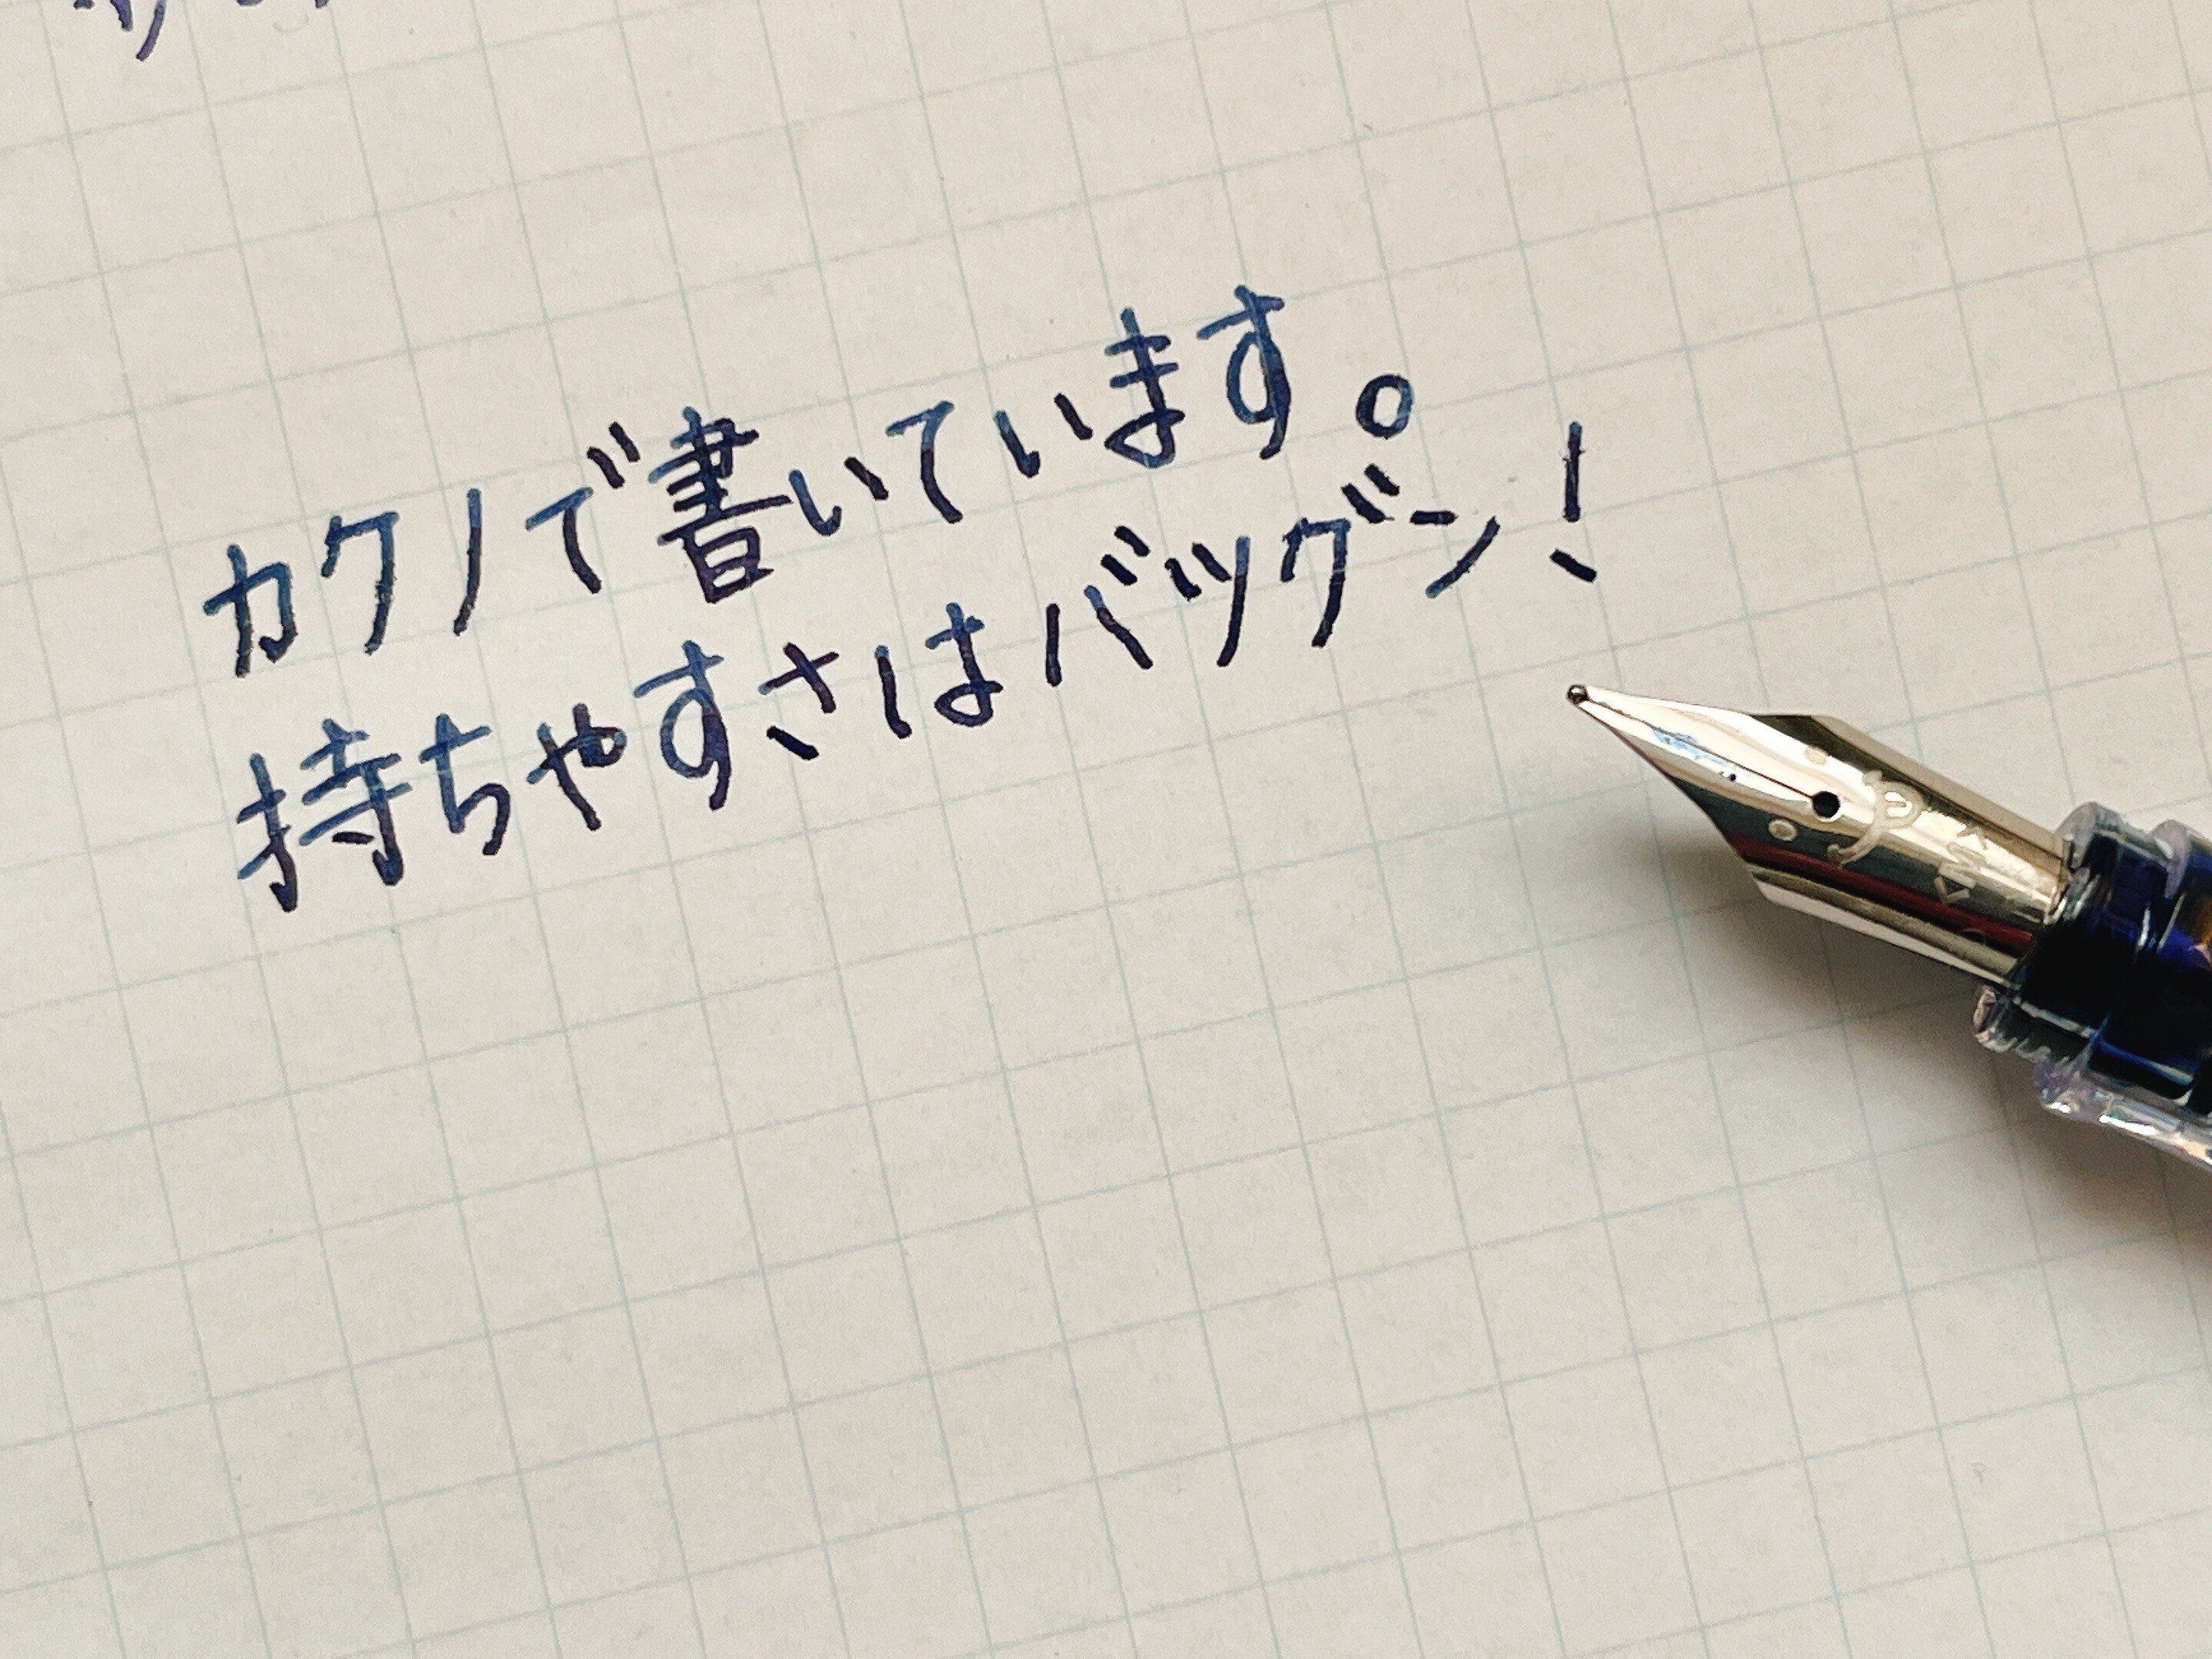 カクノで書いています。
持ちやすさはバツグン!